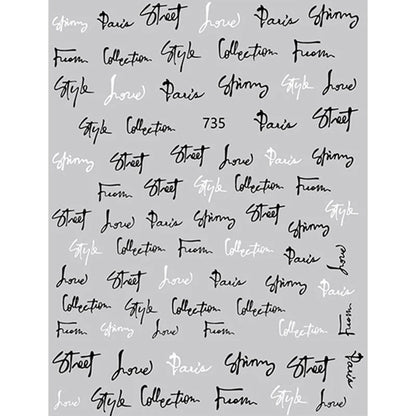 Spinny Paris Street Love Spinny
From Collection Style Collection From
Style Love Paris Spinny Style Love
Style Collection 735 Paris Street
Spinny Street Street Love Paris Spinny
From Street Style Collection From
Street Love Paris Spinny Street Spinny Style
Style Collection From Collection Paris Love
Love Street Love Paris Spinny Paris
Collection Style Collection Collection From
From Spinny Love From Collection
Street Love Paris Spinny Street Paris
Love Style Collection From Style Love